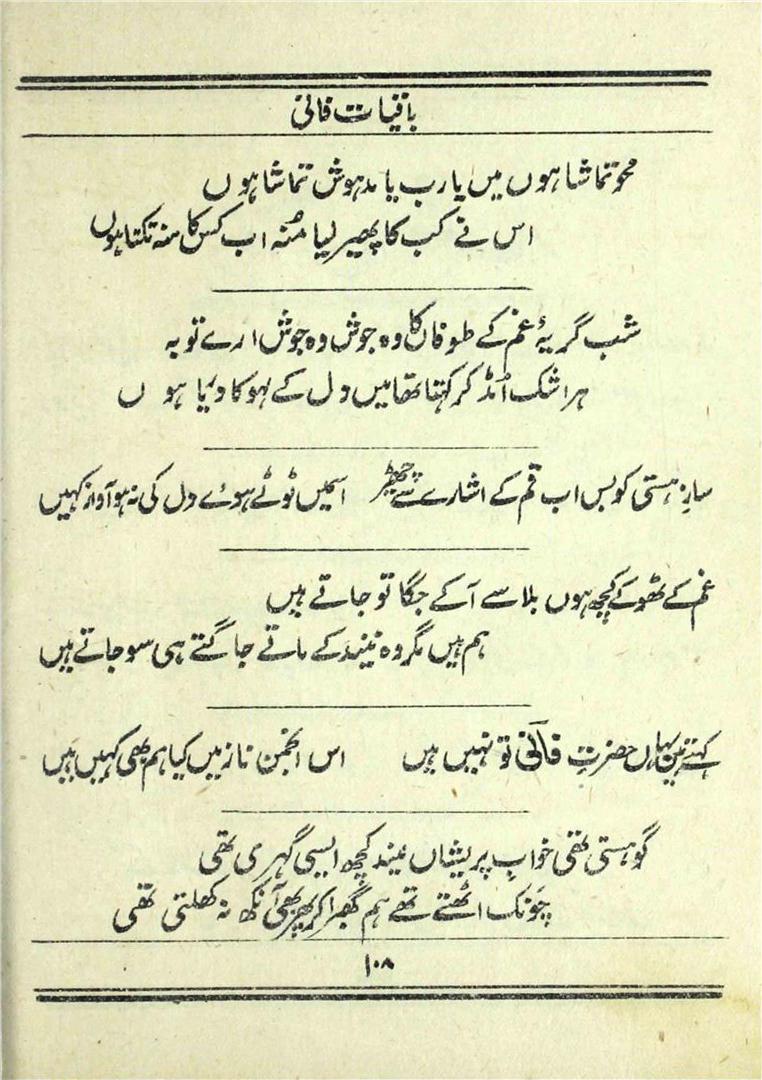 باقیات فانی
محو تماشا ہوں میں یارب یا مدہوش تماشا ہوں
اس نے کب کا پھیر لیا مُنہ اب کس کا منہ تکتا ہوں
شب گریۂ غم کے طوفاں کا وہ جوش وہ جوش ارے توبہ
ہر اشک اُمڈ کر کہتا تھا میں دل کے لہو کا دریا ہوں
سازِ ہستی کو بس اب قم کے اشارے سے چھیڑ اسمیں ٹوٹے ہوئے دل کی نہ ہو آواز کہیں
غم کے ٹھوکے کچھ ہوں بلا سے آکے جگا تو جاتے ہیں
ہم ہیں مگر وہ نیند کے ماتے جاگتے ہی سو جاتے ہیں
کہتے ہیں یہاں حضرتِ فانی تو نہیں ہیں اس انجمن ناز میں کیا ہم بھی کہیں ہیں
گو ہستی تھی خوابِ پریشاں نیند کچھ ایسی گہری تھی
چَونک اٹھتے تھے ہم گھبرا کر پھر بھی آنکھ نہ کھلتی تھی
۱۰۸